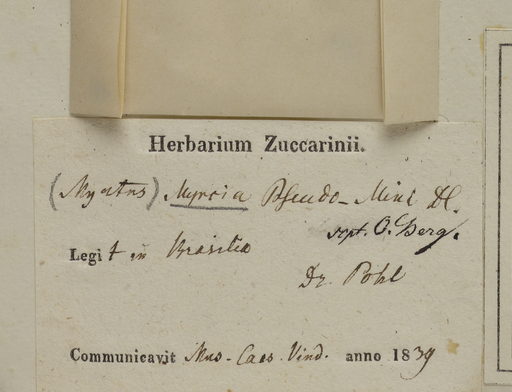 Herbarium Zuccarinii.
(Myrtus) Myrcia Pseudo-Mini DC.
script. O. Berg.
Legit in Brasilia
Dr. Pohl
Communicavit Mus. Caes. Vind. anno 1839